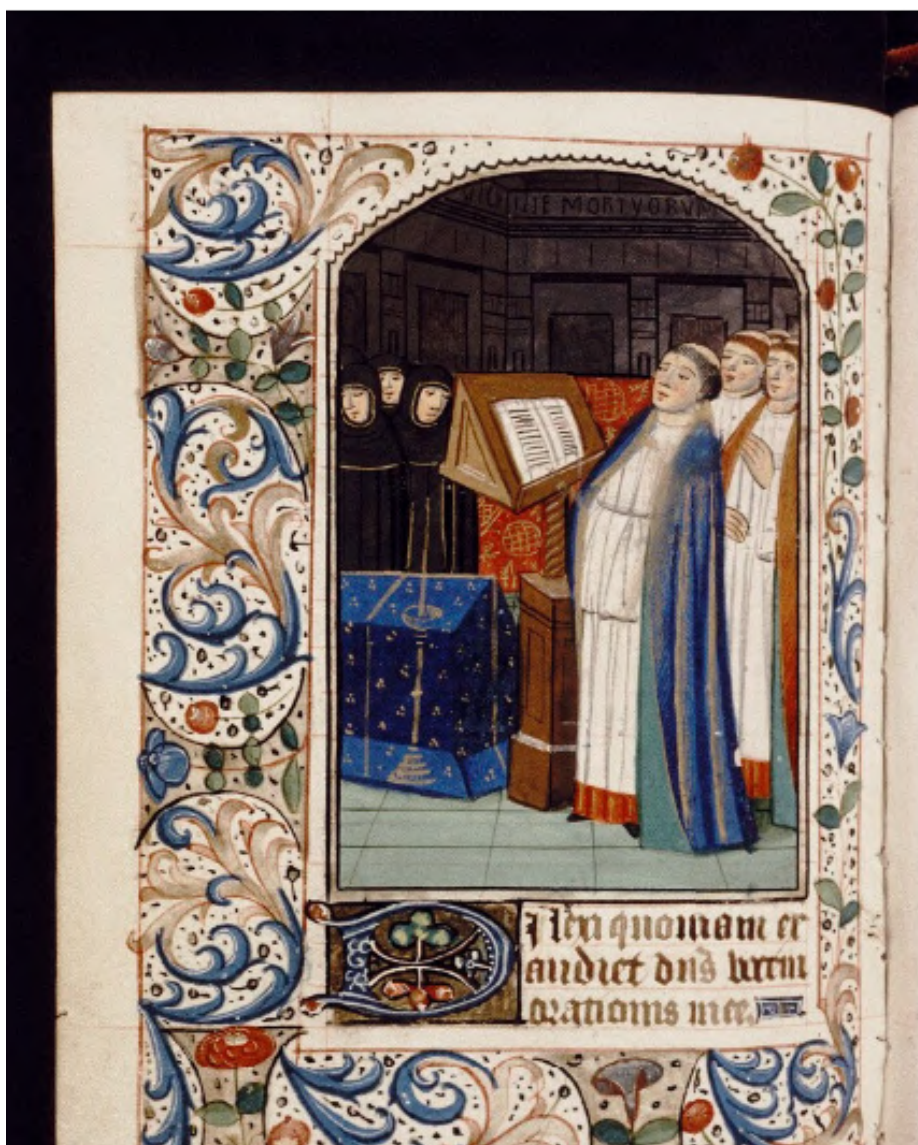 VIGILIE MORTVORVM
Dilexi quoniam ex
audiet dns vocem
orationis mee.